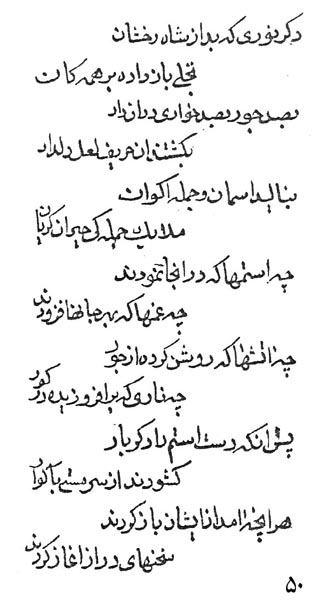 دگر نوری که بد از شاه رخشان
تجلی باز داده بر همه کان
بصد جور بصد خواری در انزاد
بکشتندان حریف لعل دلداد
بنالید اسمان و جمله اکوان
ملایک جمله کی حیران کریان
چه استمها که در انجا نمودند
چه غمها که بهر جانها فزودند
چه اتشها که روشن کرده از جور
چه ناری که بر افروزیده در کور
پس انکه دست استم راد کر بار
کشودند از سر مستی با
هر انچه امد از ایشان باز کردند
سخنهای دراز اغاز کردند
۵۰